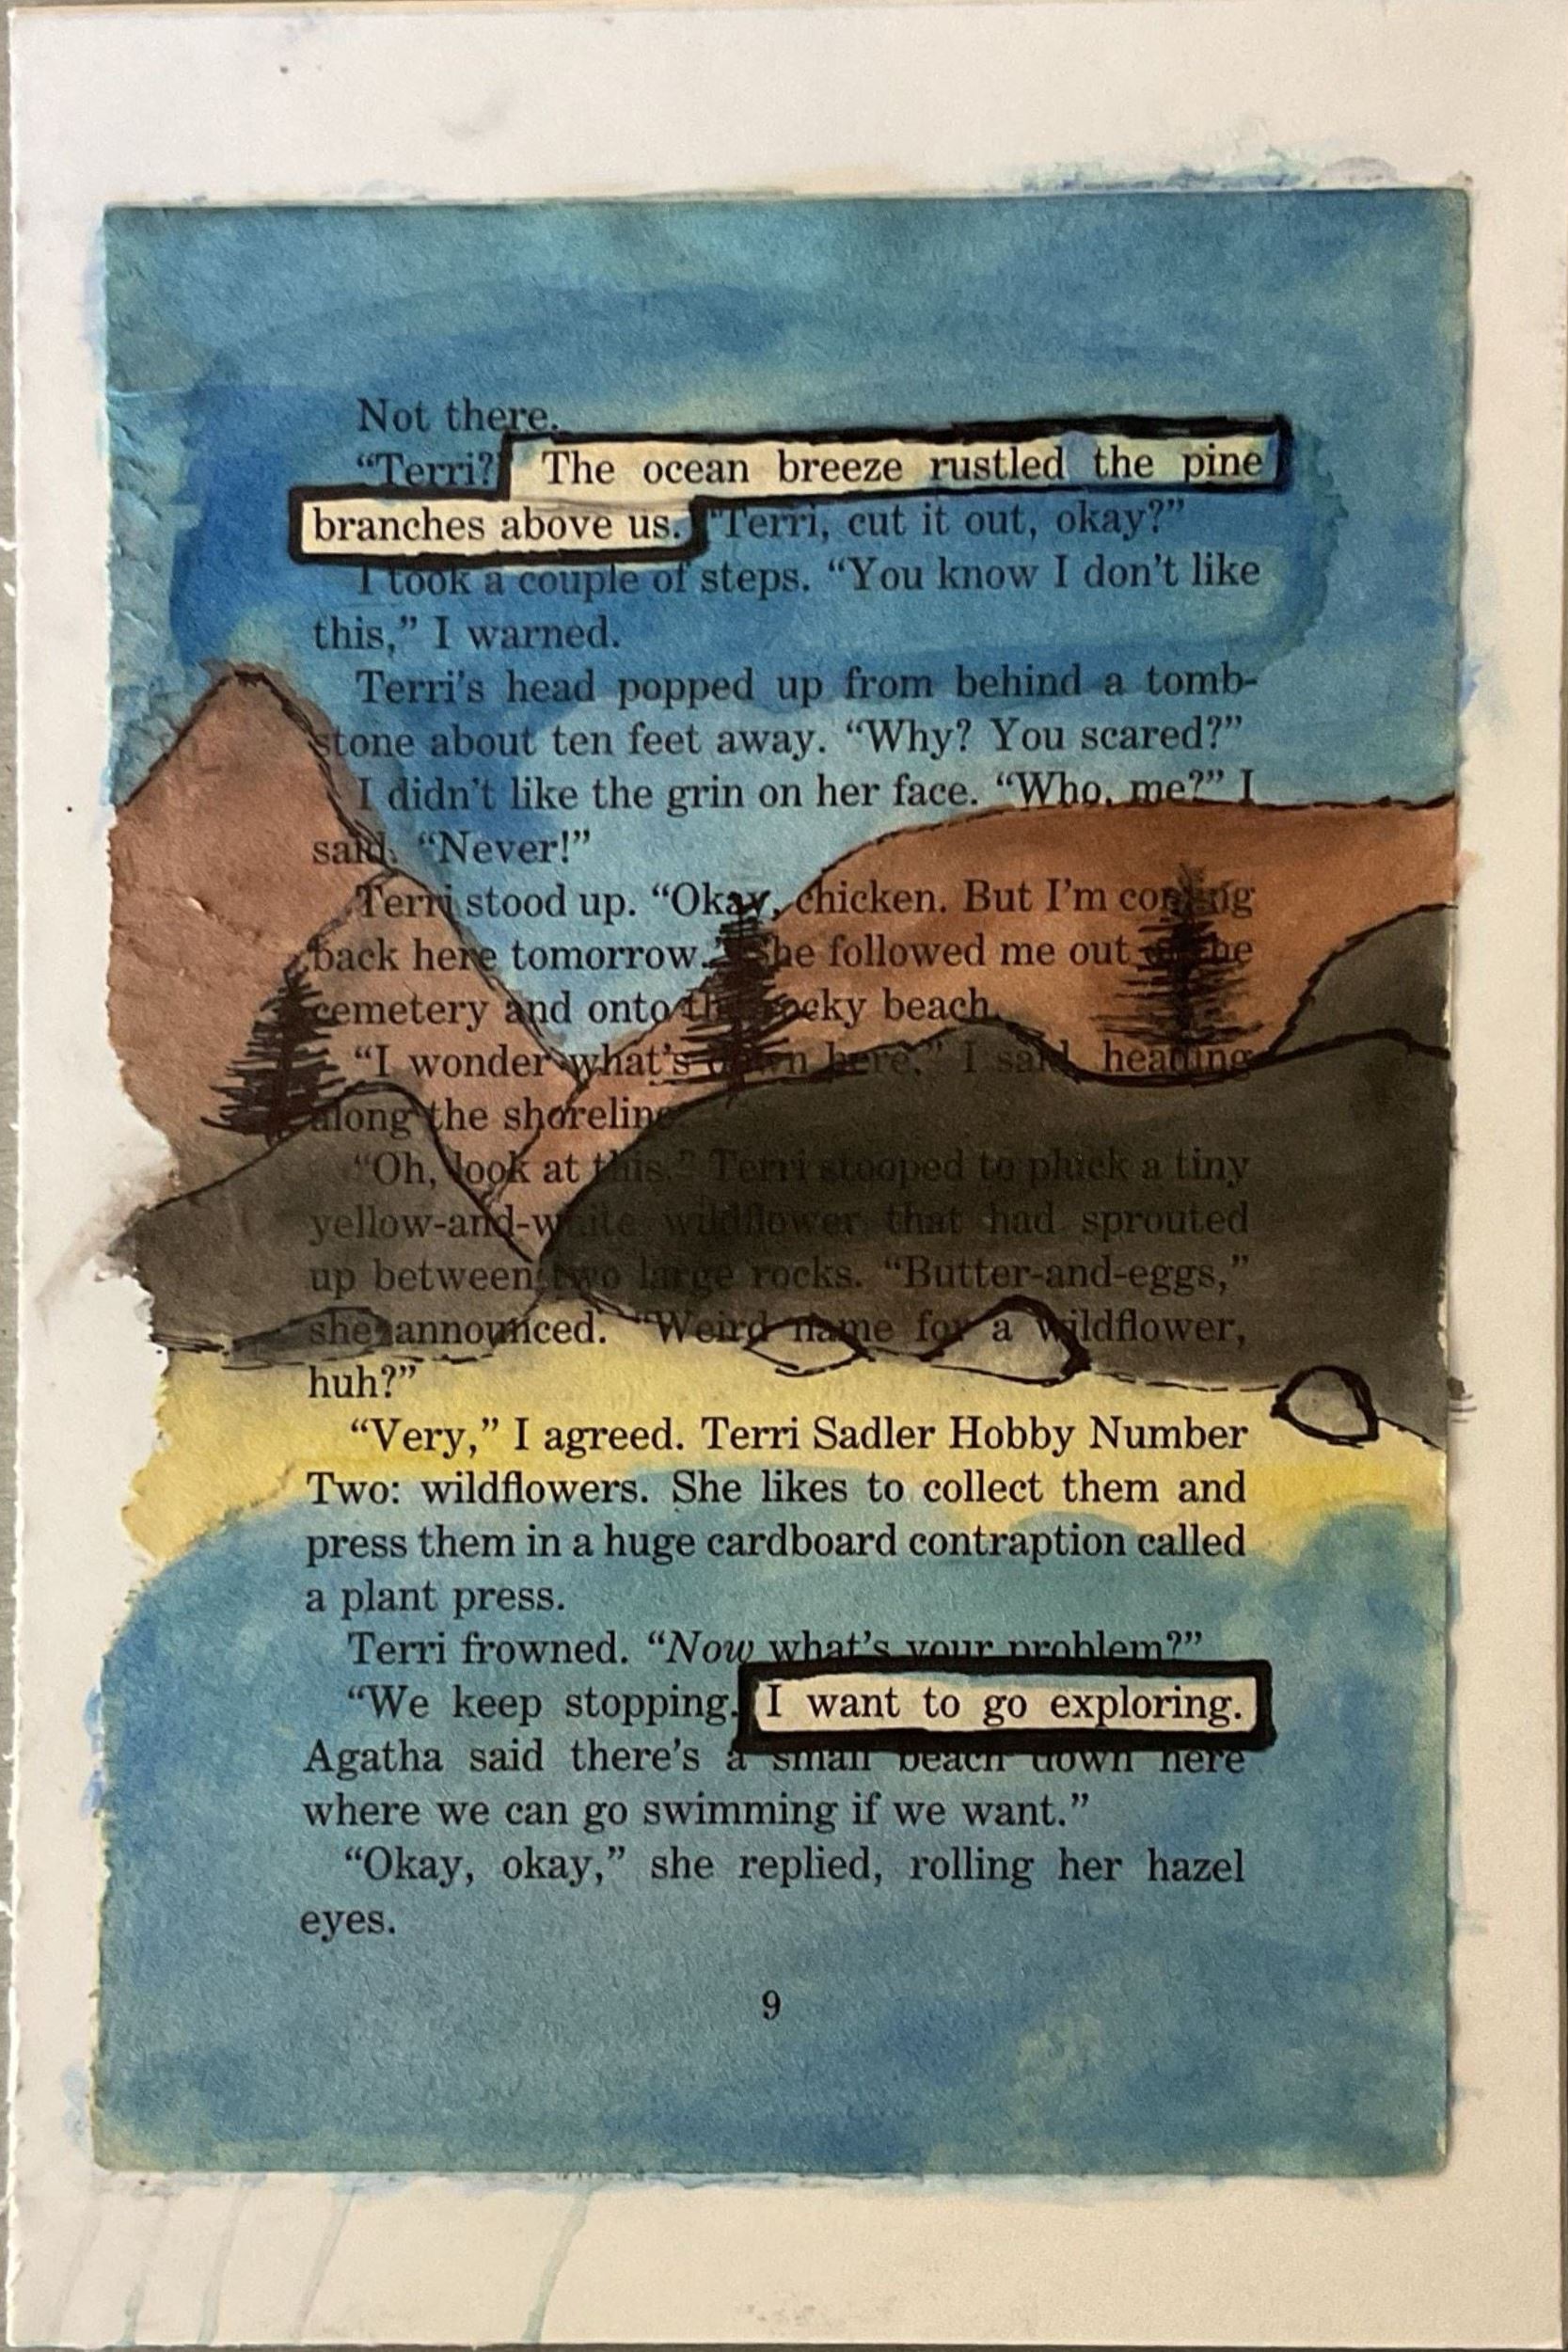 Not there.
“Terri?” The ocean breeze rustled the pine
branches above us. “Terri, cut it out, okay?”
I took a couple of steps. “You know I don’t like
this,” I warned.
Terri’s head popped up from behind a tomb-
stone about ten feet away. “Why? You scared?”
I didn’t like the grin on her face. “Who, me?” I
said. “Never!”
Terri stood up. “Okay, chicken. But I’m coming
back here tomorrow.” She followed me out of the
cemetery and onto the rocky beach.
“I wonder what’s down here,” I said, heading
along the shoreline.
“Oh, look at this.” Terri stooped to pluck a tiny
yellow-and-white wildflower that had sprouted
up between two large rocks. “Butter-and-eggs,”
she announced. “Weird name for a wildflower,
huh?”
“Very,” I agreed. Terri Sadler Hobby Number
Two: wildflowers. She likes to collect them and
press them in a huge cardboard contraption called
a plant press.
Terri frowned. “Now what’s your problem?”
“We keep stopping. I want to go exploring.
Agatha said there’s a small beach down here
where we can go swimming if we want.”
“Okay, okay,” she replied, rolling her hazel
eyes.
9